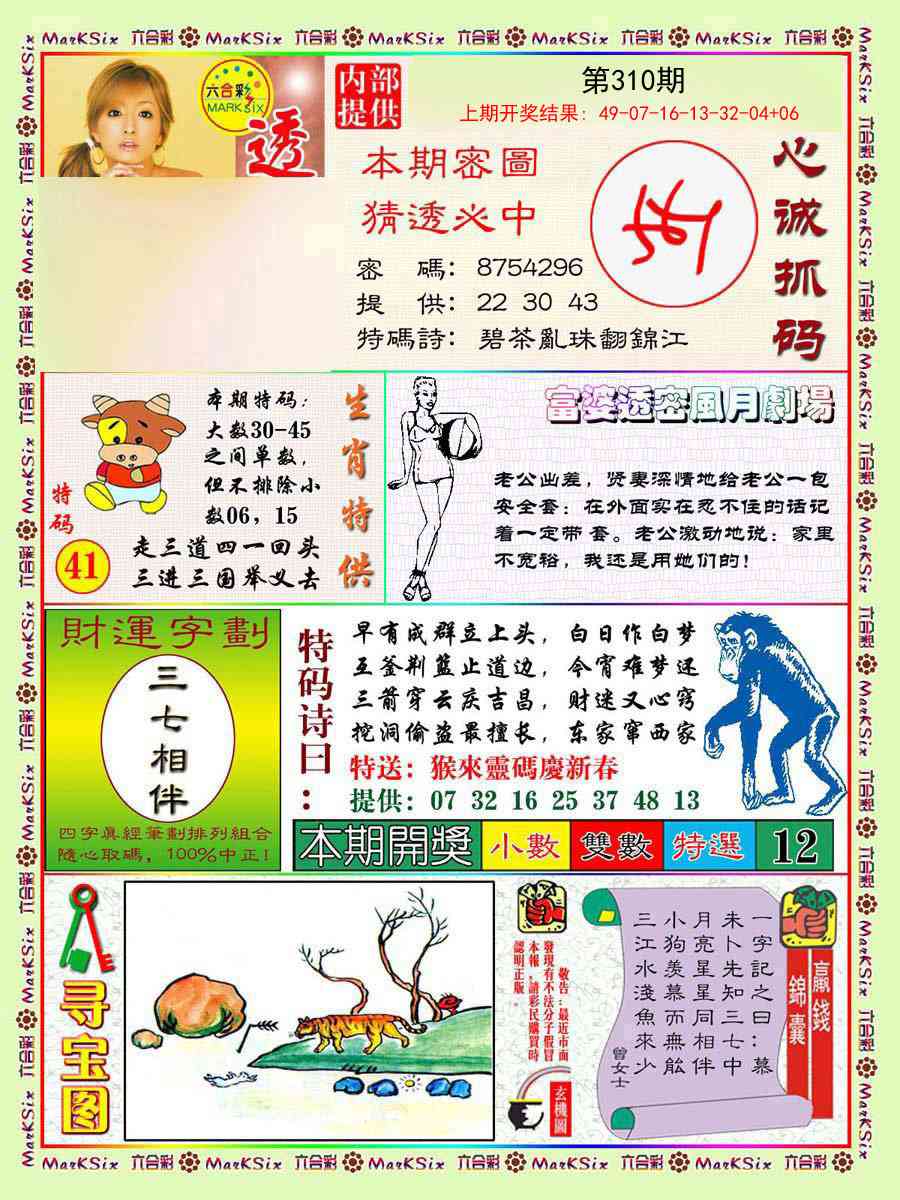 MarKSix 六合彩 MarKSix 六合彩 MarKSix 六合彩 MarKSix 六合彩 MarKSix 六合彩
六合彩
MARK six
透
内部
提供
第310期
上期开奖结果：49-07-16-13-32-04+06
本期密圖
猜透必中
密 碼：8754296
提 供：22 30 43
特碼詩：碧茶亂珠翻錦江
心诚抓码
本期特码：
大数30-45
之间单数，
但不排除小
数06，15
走三道四一回头
三进三国举义去
特码
41
生肖特供
富婆透密風月劇場
老公出差，贤妻深情地给老公一包
安全套：在外面实在忍不住的话记
着一定带 套。老公激动地说：家里
不宽裕，我还是用她们的！
財運字劃
三七相伴
四字真經筆劃排列組合
隨心取碼，100%中正！
特码诗曰：
早有成群立上头，白日作白梦
五釜荆篮止道边，今宵难梦还
三箭穿云庆吉昌，财迷又心窍
挖洞偷盗最擅长，东家窜西家
特送：猴來靈碼慶新春
提供：07 32 16 25 37 48 13
本期開獎 小數 雙數 特選 12
寻宝图
敬告：最近市面
發現有不法分子假冒
本報，請彩民購買時
認明正版。
玄機圖
一字記之曰：慕
未卜先知三七中
月亮星星同相伴
小狗羡慕而無能
三江水淺魚來少
曾女士
贏錢
錦囊
MarKSix 六合彩 MarKSix 六合彩 MarKSix 六合彩 MarKSix 六合彩 MarKSix 六合彩